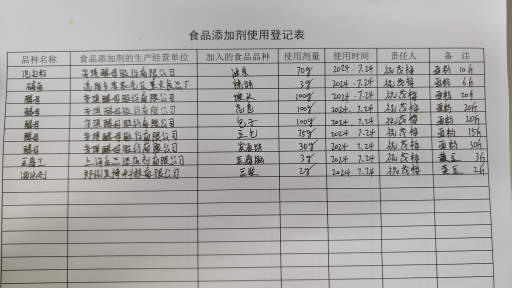 食品添加剂使用登记表
品种名称 食品添加剂的生产经营单位 加入的食品品种 使用剂量 使用时间 责任人 备 注
泡打粉 安琪酵母股份有限公司 油条 70g 2024.7.24 祝茂梅 面粉 10斤
2g 2024.7.24 祝茂梅 面粉 6斤
酵母 安琪酵母股份有限公司 馒头 100g 2024.7.24 祝茂梅 面粉 20斤
酵母 安琪酵母股份有限公司 花卷 100g 2024.7.24 祝茂梅 面粉 20斤
酵母 安琪酵母股份有限公司 包子 100g 2024.7.24 祝茂梅 面粉 20斤
酵母 安琪酵母股份有限公司 75g 2024.7.24 祝茂梅 面粉 15斤
酵母 安琪酵母股份有限公司 2024.7.24 祝茂梅 面粉
豆腐王 上海 有限公司 豆腐脑 3g 2024.7.24 祝茂梅 黄豆 3斤
消泡剂 郑州 有限公司 豆浆 2g 2024.7.24 祝茂梅 黄豆 2斤